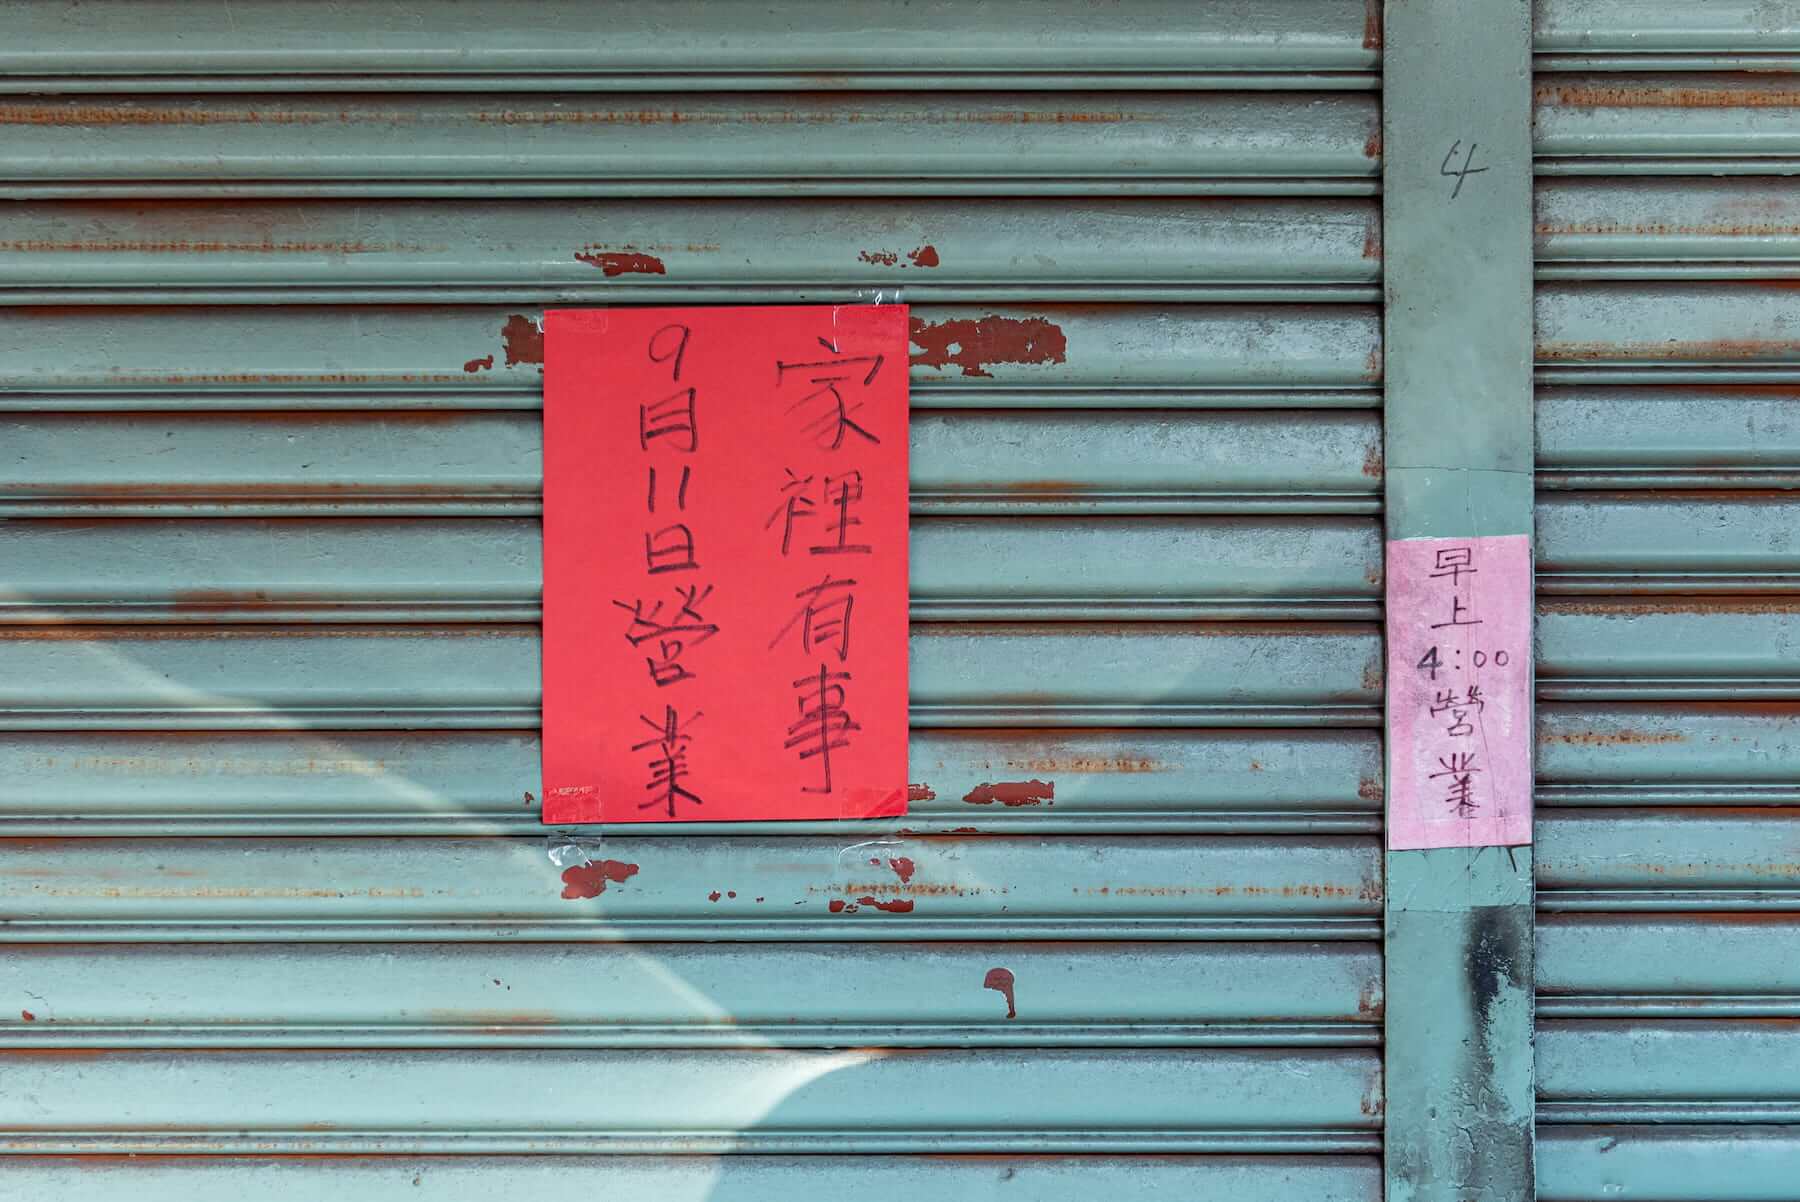 家裡有事
9月11日營業
4
早上
4:00
營業